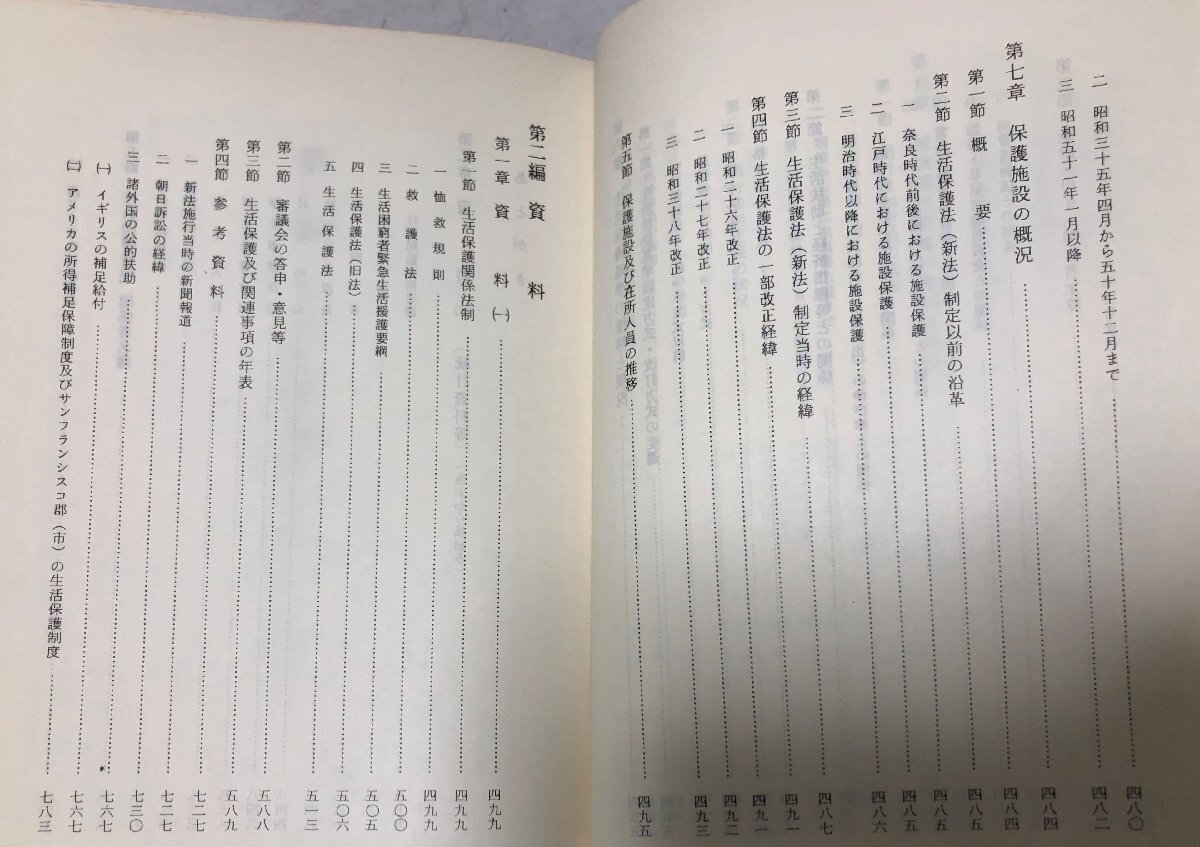 二　昭和三十五年四月から五十年十二月まで……四八〇
三　昭和五十一年一月以降……四八二
第七章　保護施設の概況……四八四
第一節　概　要……四八四
第二節　生活保護法（新法）制定以前の沿革……四八五
一　奈良時代前後における施設保護……四八五
二　江戸時代における施設保護……四八六
三　明治時代以降における施設保護……四八七
第三節　生活保護法（新法）制定当時の経緯……四九一
第四節　生活保護法の一部改正経緯……四九一
一　昭和二十六年改正……四九二
二　昭和二十七年改正……四九三
三　昭和三十八年改正
第五節　保護施設及び在所人員の推移……四九五
第二編　資　料
第一章　資　料　㈠……四九九
第一節　生活保護関係法制……四九九
一　恤救規則……四九九
二　救護法……五〇〇
三　生活困窮者緊急生活援護要綱……五〇五
四　生活保護法（旧法）……五〇六
五　生活保護法……五一三
第二節　審議会の答申・意見等……五八八
第三節　生活保護及び関連事項の年表……五八九
第四節　参考資料……七二七
一　新法施行当時の新聞報道……七二七
二　朝日訴訟の経緯……七三〇
三　諸外国の公的扶助……七六七
㈠　イギリスの補足給付……七六七
㈡　アメリカの所得補足保障制度及びサンフランシスコ郡（市）の生活保護制度……七八三